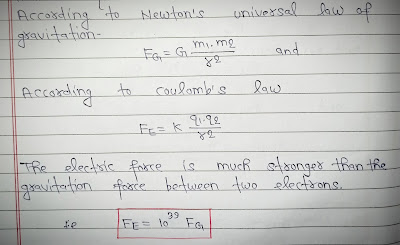 According to Newton's universal law of
gravitation-
FG = G m1.m2 / r2 and
According to Coulomb's law
FE = K q1.q2 / r2
The electric force is much stronger than the
gravitation force between two electrons.
i.e FE = 10^39 FG